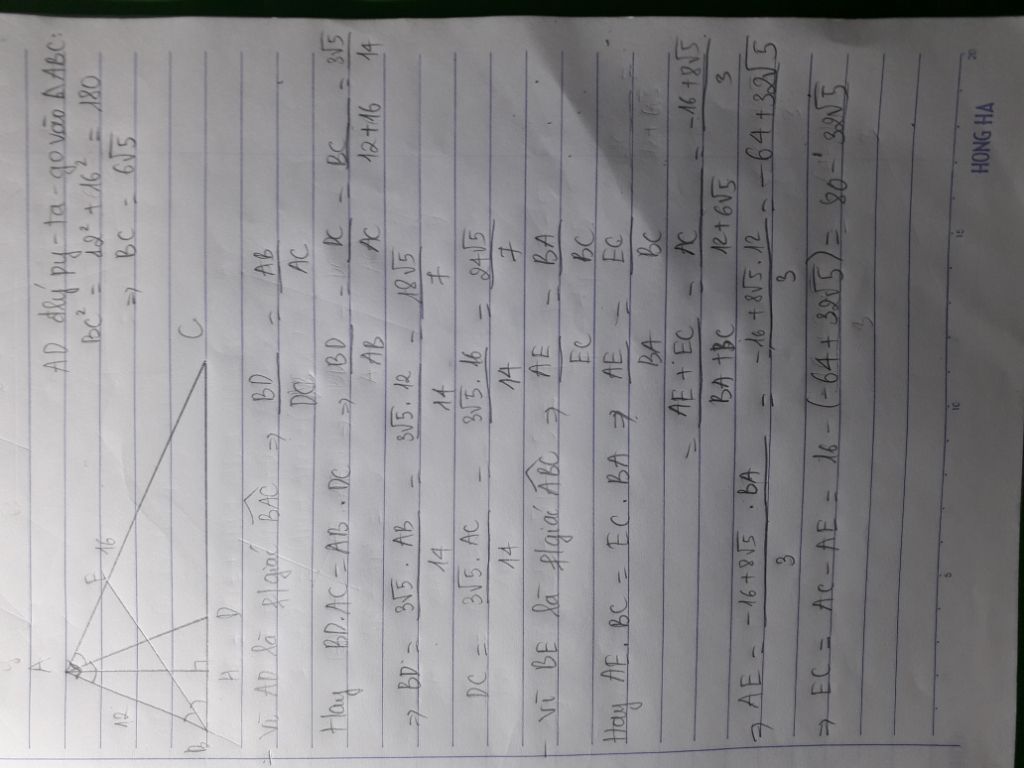 A
12
16
E
B
H
D
C
AD đlý py-ta-go vào ∆ABC:
BC² = 12² + 16² = 180
⇒ BC = 6√5
- Vì AD là BAC ⇒ BD/DC = AB/AC
Hay BD.AC = AB.DC ⇒ BD/AB = DC/AC = BC/12+16 = 3√5/14
⇒ BD = 3√5.AB/14 = 3√5.12/14 = 18√5/7
DC = 3√5.AC/14 = 3√5.16/14 = 24√5/7
- Vì BE là ABC ⇒ AE/EC = BA/BC
Hay AE.BC = EC.BA ⇒ AE/BA = EC/BC
= AE+EC/BA+BC = AC/12+6√5 = -16+8√5/3
⇒ AE = -16+8√5.BA/3 = -16+8√5.12/3 = -64+32√5
⇒ EC = AC - AE = 16 - (-64+32√5) = 80 - 32√5
HONG HA
5
10
15
20